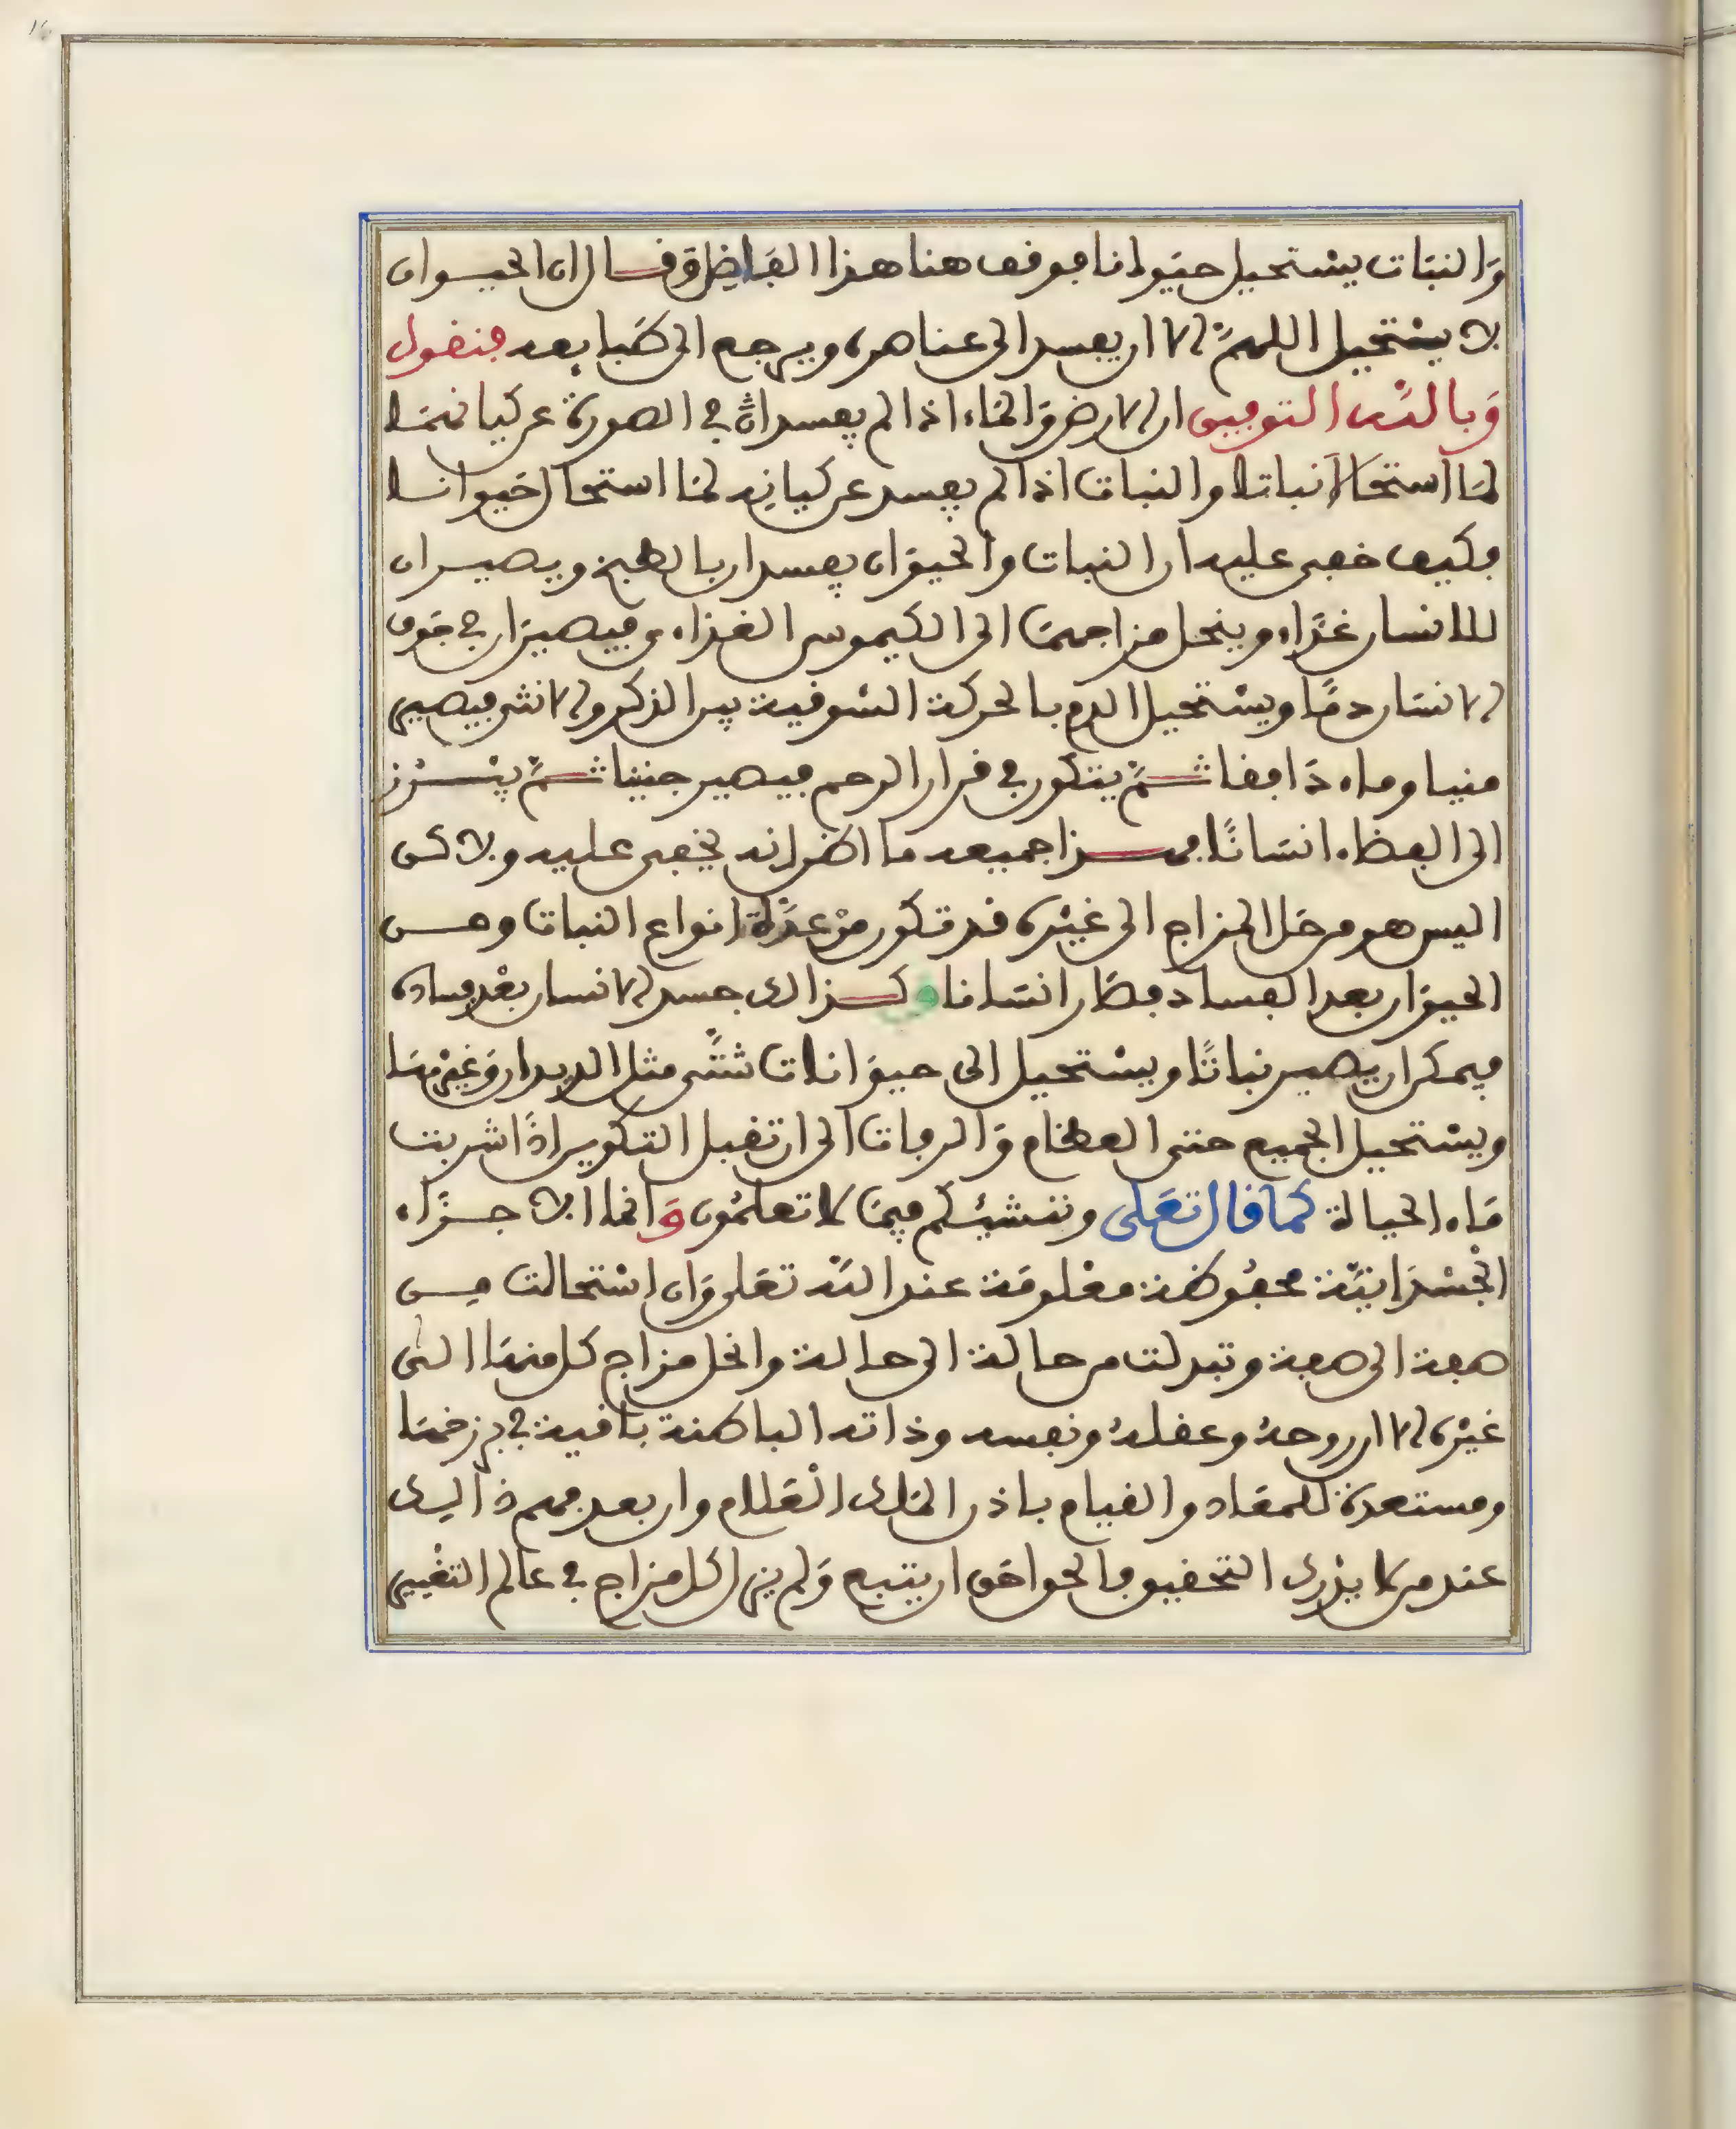 وَالنبَات يسْتحيل حيَوانا فوقف هنا هذا الفَاضِل وَقال ان الحيوان
لا يسْتحيل اللهمَّ الا ان يفسد الى عناصره ويرجع الى طَبايعه فنقول
وَبالله التوفيق ان الارض وَالمَاء اذا لم يفسدا في الصورة عن كيانهمَا
لمَا استحَالا نباتا والنبات اذا لم يفسد عن كيانه لمَا استحال حَيوانا
فكيف خفي عليه ان النبات والحيوَان يفسدان بالطبخ ويصيران
للانسان غذَاء وينحل مزاجهمَا الى الكيموس الغذاء فيصيرَان في جَوف
الانسَان دمًا ويسْتحيل الدم بالحركة الشوقية بين الذكر والانثى فيصير
منيا وماء دَافقا ثمَّ يتكون في قرار الرحم فيصير جنينا ثمَّ يبْرُز
الى الفضاء انسَانًا فهذا جميعه ما اظن انه يخفى عليه ولاكن
اليس هو من حَل المزاج الى غيْره قد تكون منْ عدَّة انواع النبات ومن
الحيوَان بعد الفساد فصَار انسَانا وكذالك جسد الانسان بعْد فساده
فيمكن ان يصير نباتًا ويسْتحيل الى حيوَانات شتَّى مثل الديدان وَغيْرهَا
ويسْتحيل الجميع حتى العظام وَالرفات الى ان تقبل التكوين اذَا شربت
مَاء الحياة كما قال تعَلى وننشئكم فيمَا لا تعلمُون وَانما الاجزَاء
الجسْدَانيَّة محفوُظة معْلومَة عند الله تعَلى وَان اسْتحالت من
صفة الى صفة وتبدلت من حالة الى حالة وانحل مزاج كل منهَا الى
غيْره الا ان روحهُ وعقلهُ ونفسه وذاته الباطنة باقية في برزخهَا
ومستعدة للمعَاد والقيام باذن المَلك العَلام وان بعد فهم ذَالك
عند من لا يدْرك التحقيق فالحق احَق ان يتبع وَلم يزل كل مزاج في عالم التغْيير